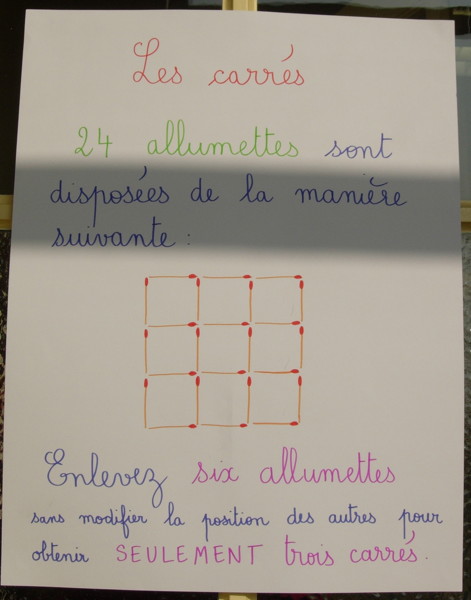 Les carrés
24 allumettes sont
disposées de la manière
suivante :
Enlevez six allumettes
sans modifier la position des autres pour
obtenir SEULEMENT trois carrés.